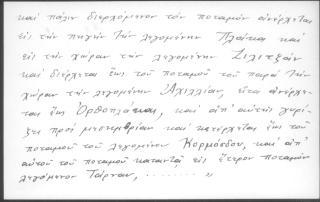 καὶ πάλιν διερχόμενον τὸν ποταμὸν ἀνέρχεται
εἰς τὴν πηγὴν τὴν λεγομένην Πλάκα καὶ
εἰς τὴν χώραν τὴν λεγομένην Ζιλιτζὰν
καὶ διέρχεται ἕως τοῦ ποταμοῦ τοῦ παρὰ τὴν
χώραν τὴν λεγομένην Ἀχιλλίαν, εἶτα ἀνέρχε-
ται ἕως Ὀρθοπλάκαι, καὶ ἀπ' αὐτῆς γυρί-
ζει πρὸς μεσημβρίαν καὶ κατέρχεται ἕως τοῦ
ποταμοῦ τοῦ λεγομένου Κορμόσδου, καὶ ἀπ'
αὐτοῦ τοῦ ποταμοῦ καταντᾷ εἰς ἕτερον ποταμὸν
λεγόμενον Τάρταν, ........ »